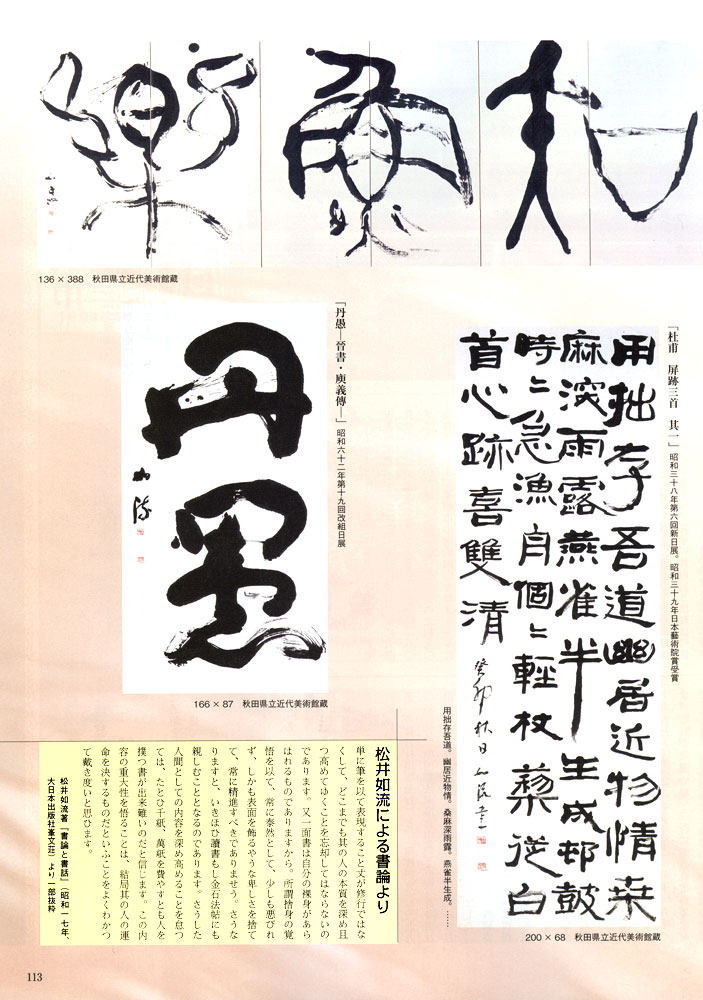 知魚樂
136 × 388　秋田県立近代美術館蔵
「杜甫　屏跡三首　其一」昭和三十八年第六回新日展。昭和三十九年日本藝術院賞受賞
用拙存吾道幽居近物情桒
麻深雨露燕雀半生成邨鼓
時〻急漁舟個〻軽杖藜従白
首心跡喜雙清
癸卯秋日
用拙存吾道。幽居近物情。桑麻深雨露。燕雀半生成。……
200 × 68　秋田県立近代美術館蔵
「丹愚―晉書・庾義傳―」昭和六十二年第十九回改組日展
丹愚
如流
166 × 87　秋田県立近代美術館蔵
松井如流による書論より
単に筆を以て表現すること丈が修行ではな
くして、どこまでも其の人の本質を深め且
つ高めてゆくことを忘却してはならないの
であります。又一面書は自分の裸身があら
はれるものでありますから。所謂捨身の覚
悟を以て、常に泰然として、少しも悪びれ
ず、しかも表面を飾るやうな卑しさを捨て
て、常に精進すべきでありませう。さうな
りますと、いきほひ讀書もし金石法帖にも
親しむこととなるのであります。さうした
人間としての内容を深め高めることを怠つ
ては、たとひ千紙、萬紙を費やすとも人を
撲つ書が出来難いのだと信じます。この内
容の重大性を悟ることは、結局其の人の運
命を決するものだといふことをよくわかつ
て戴き度いと思ひます。
松井如流著『書論と書話』（昭和一七年、
大日本出版社峯文荘）より一部抜粋
113